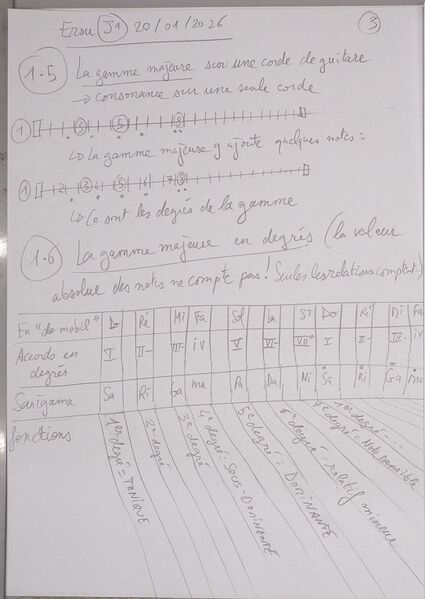 Ersu J1 20/01/2026 3
1.5 La gamme majeure sur une corde de guitare
→ consonance sur une seule corde
1 3 5 8
↳ La gamme majeure y ajoute quelques notes :
1 2 3 4 5 6 7 8
↳ Ce sont les degrés de la gamme
1.6 La gamme majeure en degrés (la valeur
absolue des notes ne compte pas! Seules les relations comptent.)
En "do mobil" Do Ré Mi Fa Sol La Si Do Ré Mi Fa
Accords en degrés I II- III- IV V VI- VII° I II- III- IV
Sarigama Sa Ri Ga ma Pa Da Ni Sa Ri Ga ma
fonctions
1er degré = TONIQUE
2e degré
3e degré
4e degré = SOUS-DOMINANTE
5e degré = DOMINANTE
6e degré = relatif mineur
7e degré = Note sensible
1er degré ...